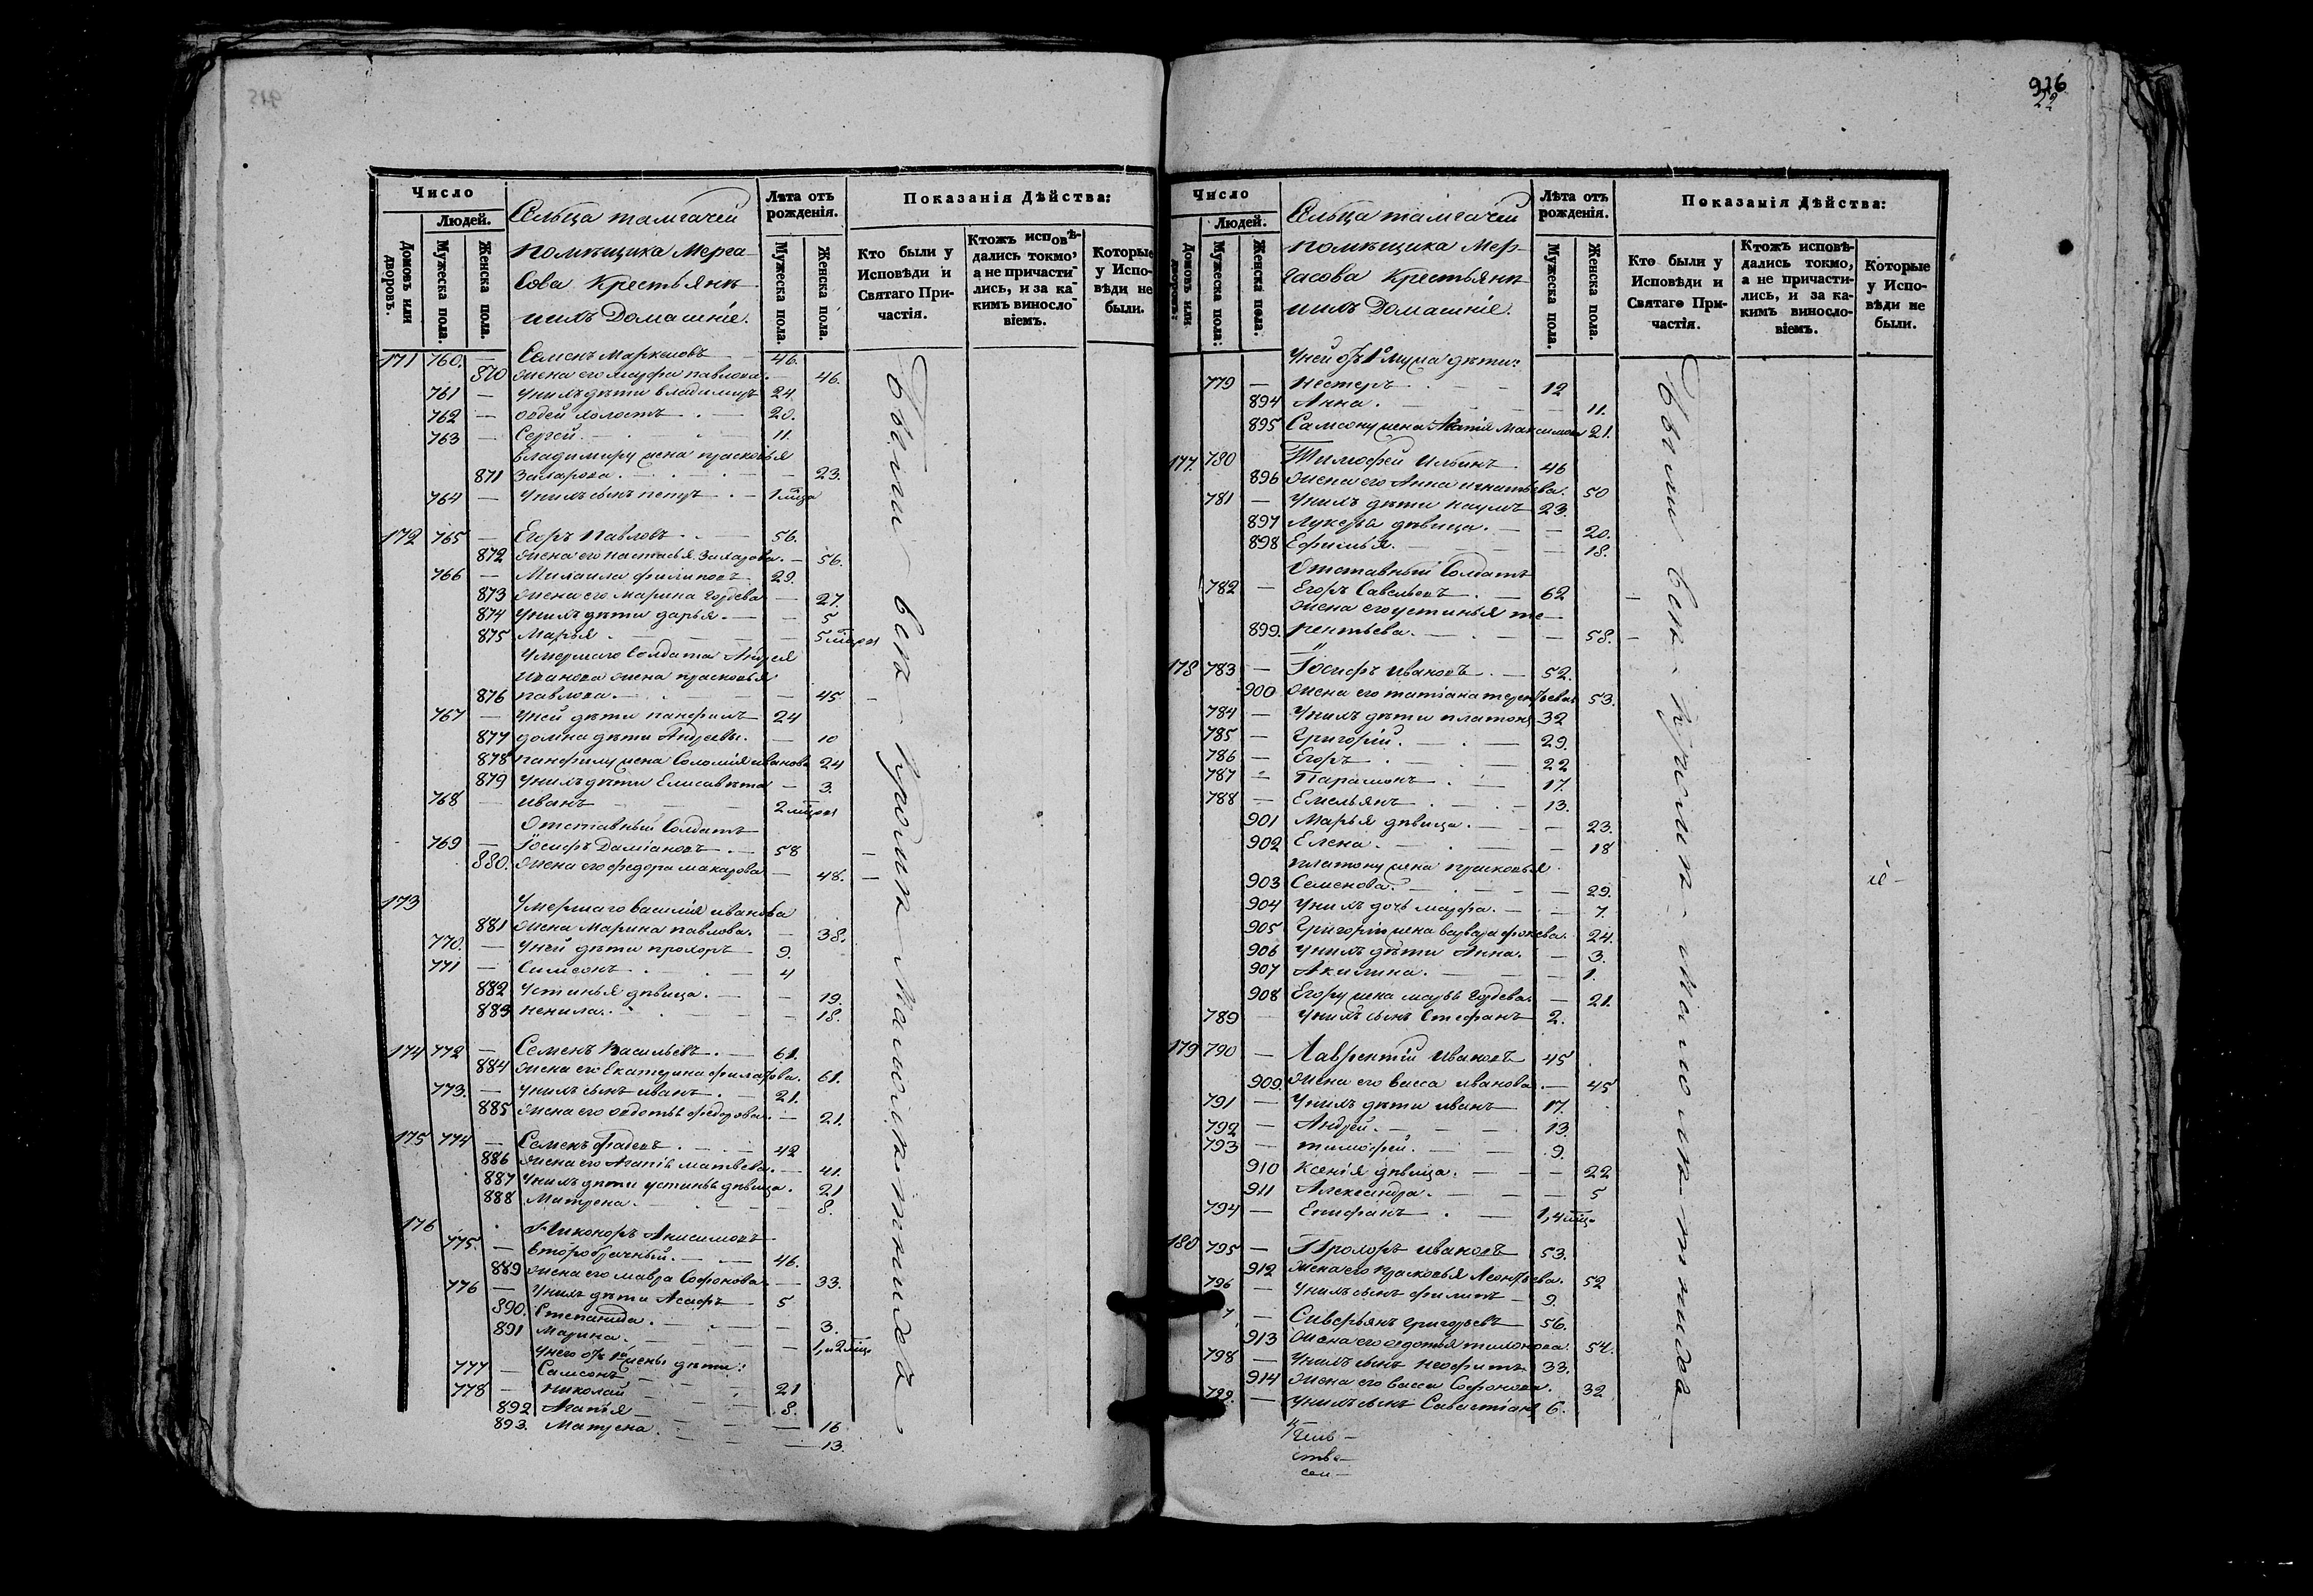 Число
Людей.
Домовъ или дворовъ.
Мужеска пола.
Женска пола.
Сельца тамгачей
помѣщика Мерга-
сова Крестьянѣ
ихъ Домашніе.
Лѣта отъ рожденія.
Мужеска пола.
Женска пола.
Показанія Дѣйства:
Кто были у Исповѣди и Святаго Причастія.
Ктожъ исповѣдались токмо, а не причастились, и за какимъ винословіемъ.
Которые у Исповѣди не были.
171 760. — Семенъ Маркеловъ — 46.
870 жена его марфа павлова. — 46.
761 — У нихъ дѣти владимиръ 24
762 — овдей холостъ — 20.
763 — Сергей — 11.
владимиру жена прасковья
871 Захарова. — 23.
764 — У нихъ сынъ петръ — 1 мца
172 765 — Егоръ Павловъ — 56.
872 жена его настасья Захарова. — 56.
766 — Михаила филиповъ 29.
873 жена его Марина Гордева — 27.
874 У нихъ дѣти дарья. — 5
875 Марья. — 5 мцеи
Умершаго Солдата Андрея
Иванова жена прасковья
876 павлова. — 45. —
767 — У ней дѣти панфилъ 24
877 домна дѣти Андреевы. — 10
878 панфилу жена Соломія иванова 24
879 У нихъ дѣти Елисавѣта — 3.
768 — иванъ — 2 мцеи
Отставный Солдатъ
769 — Іосифъ Даміановъ — 58 —
880. жена его федора макарова — 48. —
173 Умершаго василія иванова
881 жена Марина павлова. — 38.
770. — У ней дѣти прохоръ 9.
771 — Симеонъ — 4
882 Устинья дѣвица. — 19.
883 ненила. — 18.
174 772 — Семенъ Васильевъ. — 61.
884 жена его Екатерина филатова. 61.
773. — У нихъ сынъ иванъ. — 21.
885 жена его овдотья федорова. — 21.
175 774 — Семенъ Фадеевъ. — 42
886 жена его Агапія матвеева. — 41.
887 У нихъ дѣти устинья дѣвица. 21
888 Матрена. — 8.
176 Никоноръ Анисимовъ
775. — второбрачный. — 46.
889 жена его мавра Софонова — 33.
776 — У нихъ дѣти Асафъ 5
890. Степанида. — 3.
891 Марина. — 1, и 2 мцо
У него отъ 1й жены дѣти:
777 — Самсонъ — 21
778 — николай — 8.
892 Агапья — 16
893. Матрена. — 13.
были
всѣ
926
22
Число
Людей.
Домовъ или дворовъ.
Мужеска пола.
Женска пола.
Сельца тамгачей
помѣщика Мер-
гасова Крестьянѣ
ихъ Домашніе.
Лѣта отъ рожденія.
Мужеска пола.
Женска пола.
Показанія Дѣйства:
Кто были у Исповѣди и Святаго Причастія.
Ктожъ исповѣдались токмо, а не причастились, и за какимъ винословіемъ.
Которые у Исповѣди не были.
У ней отъ 1го мужа дѣти:
779 — Нестеръ — 12
894 Анна. — 11.
895 Самсону жена Агапія Максимова 21.
177. 780 Тимофей Ильинъ 46
896 жена его Анна игнатьева. 50
781 — У нихъ дѣти наумъ 23.
897 лукерья дѣвица. — 20.
898 Ефимья. — 18.
Отставный Солдатъ
782 — Егоръ Савельевъ. — 62 —
жена его устинья те-
899. рентьева. — 58. —
178 783 — Іосифъ ивановъ. — 52.
900 жена его татіана терентьева 53.
784 — У нихъ дѣти платонъ 32
785 — Григорій. — 29.
786 — Егоръ — 22
787 — Парамонъ — 17.
788 — Емельянъ — 13.
901 Марья дѣвица. — 23.
902 Елена. — 18
платону жена прасковья
903 Семенова. — 29.
904 У нихъ дочь марфа. — 7.
905 Григорію жена варвара фокеева. 24.
906 У нихъ дѣти Анна. — 3.
907 Акилина. — 1.
908 Егору жена марья Гордева. — 21.
789 — У нихъ сынъ Стефанъ 2.
179 790 — Лаврентій Ивановъ 45
909. жена его васса иванова. — 45
791 — У нихъ дѣти иванъ 17.
792 — Андрей. — 13.
793 — тимофей. — 9.
910 Ксенія дѣвица. — 22
911 Александра. — 5
794 — Епифанъ — 1, 4 мцо
180 795 — Прохоръ ивановъ 53.
912 жена его Прасковья Леонтьева. 52
796 — У нихъ сынъ филипъ 9.
7 — Сиверьянъ григорьевъ 56.
913 жена его овдотья тихонова. 54.
798 — У нихъ сынъ Неофитъ 33.
914 жена его васса Софонова. 32
799. — У нихъ сынъ Савастіанъ 6.
были
всѣ